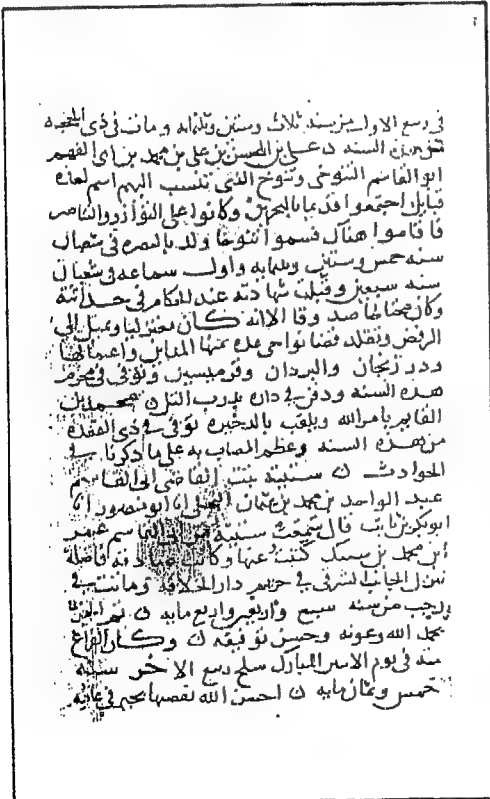 في ربيع الاول من سنه ثلاث وستين وثلثمايه ومات في ذي الحجه
من هذه السنه ن علي بن المحسن بن علي بن محمد بن ابي الفهم
ابو القاسم التنوخي وتنوخ الذي تنسب اليهم اسم لعده
قبايل اجتمعوا قديما بالبحرين وكانوا على التوازر والتناصر
فاقاموا هناك فسموا تنوخا ولد بالبصره في شعبان
سنه خمس وستين وثلثمايه واول سماعه في شعبان
سنه سبعين وقبلت شهادته عند الحكام في حداثته
وكان محتاطا صدوقا الا انه كان معتزليا ويميل الى
الرفض وتقلد قضا نواحي عده منها المداين واعمالها
ودرزيجان والبردان وقرميسين وتوفي في محرم
هذه السنه ودفن في داره بدرب التل ن محمد بن
القايم بامر الله ويلقب بالذخيره توفي في ذي القعده
من هذه السنه وعظم المصاب به على ما ذكرنا في
الحوادث ن ستيته بنت القاضي ابي القاسم
عبد الواحد بن محمد بن عثمان البجلي انا ابو منصور انا
ابو بكر بن ثابت قال سمعت ستيته من ابي القاسم عمر
ابن محمد بن سبنك كتبت عنها وكانت صادقه فاضله
تنزل الجانب الشرقي في حريم دار الخلافه وماتت في
رجب من سنه سبع واربعين واربع مايه ن تم
بحمد الله وعونه وحسن توفيقه ن وكان الفراغ
منه في يوم الاسر المبارك سلخ ربيع الاخر سنه
خمس وثمان مايه ن احسن الله نقصها بخير في عافيه